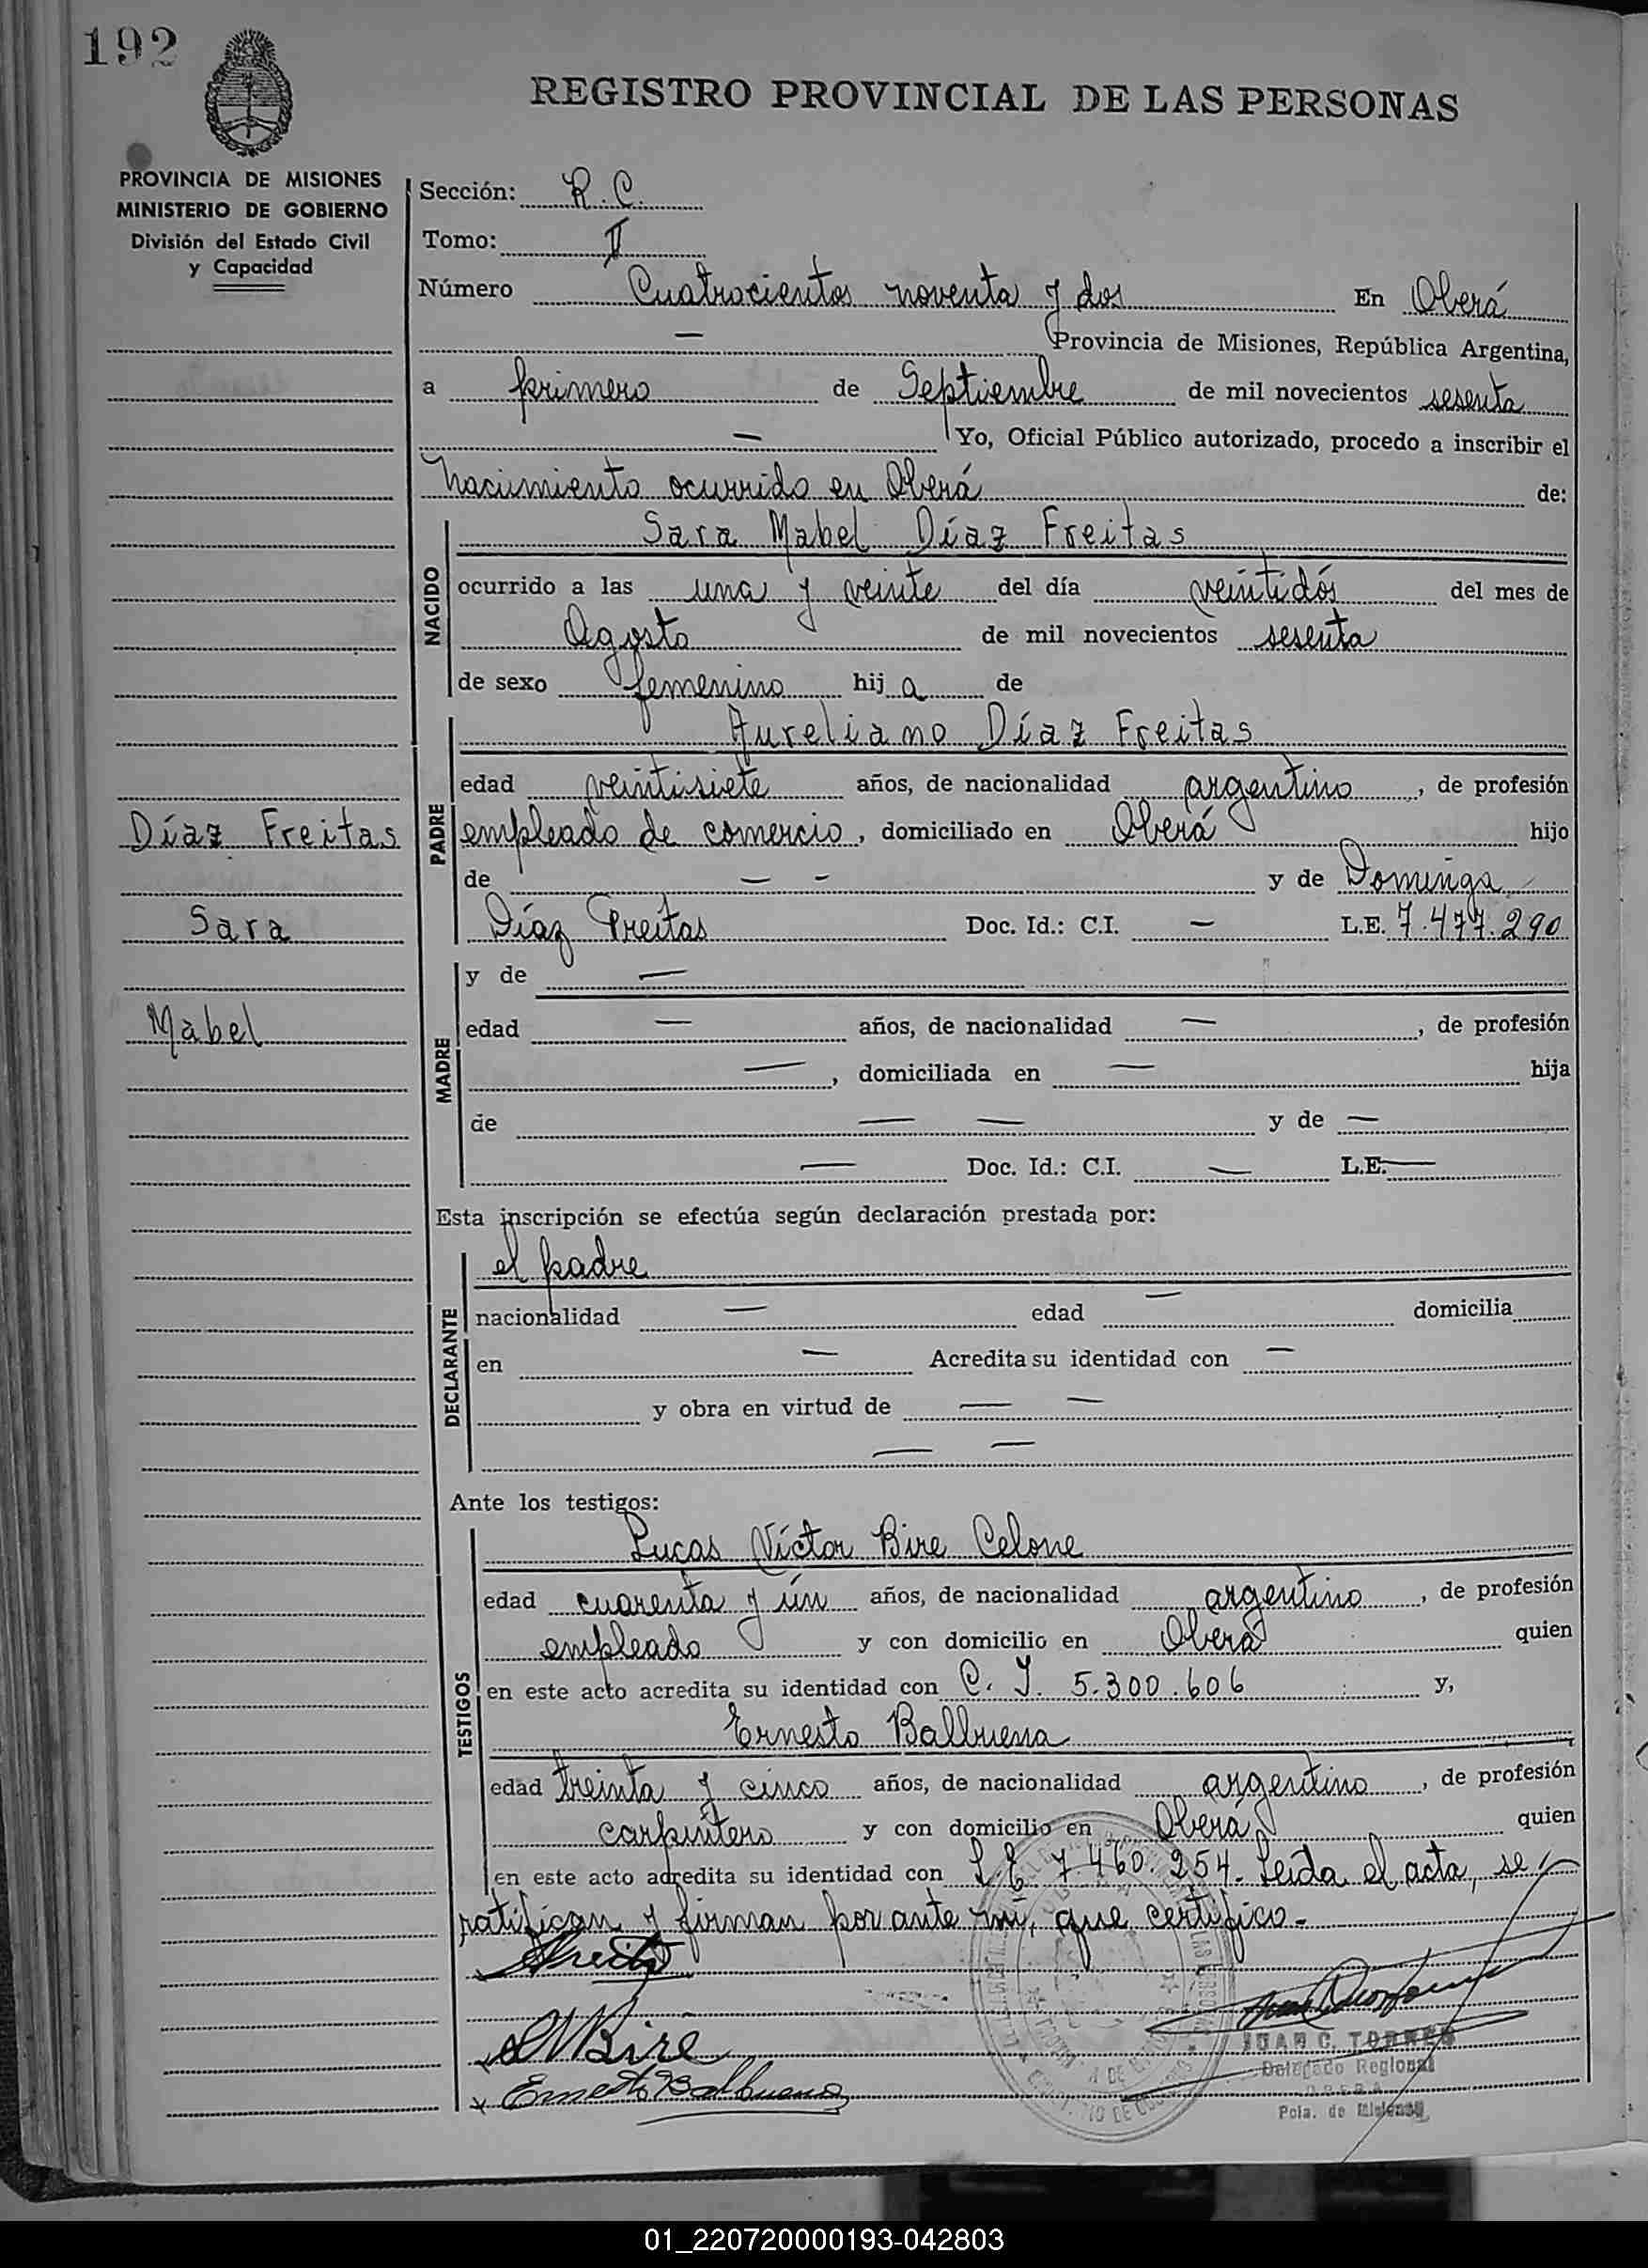 192
REGISTRO PROVINCIAL DE LAS PERSONAS
PROVINCIA DE MISIONES
MINISTERIO DE GOBIERNO
División del Estado Civil
y Capacidad
Sección: R. C.
Tomo: II
Número Cuatrocientos noventa y dos En Oberá
— Provincia de Misiones, República Argentina,
a primero de Septiembre de mil novecientos sesenta
— Yo, Oficial Público autorizado, procedo a inscribir el
Nacimiento ocurrido en Oberá de:
NACIDO
Sara Mabel Díaz Freitas
ocurrido a las una y veinte del día veintidós del mes de
Agosto de mil novecientos sesenta
de sexo femenino hij a de
PADRE
Aureliano Díaz Freitas
edad veintisiete años, de nacionalidad argentino, de profesión
Díaz Freitas
empleado de comercio, domiciliado en Oberá hijo
de — - y de Dominga
Sara
Díaz Freitas Doc. Id.: C.I. — L.E. 7.477.290
MADRE
y de —
Mabel
edad — años, de nacionalidad —, de profesión
—, domiciliada en — hija
de — — y de —
— Doc. Id.: C.I. — L.E. —
Esta inscripción se efectúa según declaración prestada por:
DECLARANTE
el padre
nacionalidad — edad — domicilia
en — Acredita su identidad con —
y obra en virtud de — —
— —
Ante los testigos:
TESTIGOS
Lucas Víctor Bire Celone
edad cuarenta y ún años, de nacionalidad argentino, de profesión
empleado y con domicilio en Oberá quien
en este acto acredita su identidad con C. I. 5.300.606 y,
Ernesto Balbuena
edad treinta y cinco años, de nacionalidad argentino, de profesión
carpintero y con domicilio en Oberá quien
en este acto acredita su identidad con L E 7.460.254. Leida el acta, se
ratifican y firman por ante mí, que certifico.-
JUAN C. TORRES
Delegado Regional
OBERA
Pcia. de Misiones
Bire
Ernesto Balbuena
01_220720000193-042803